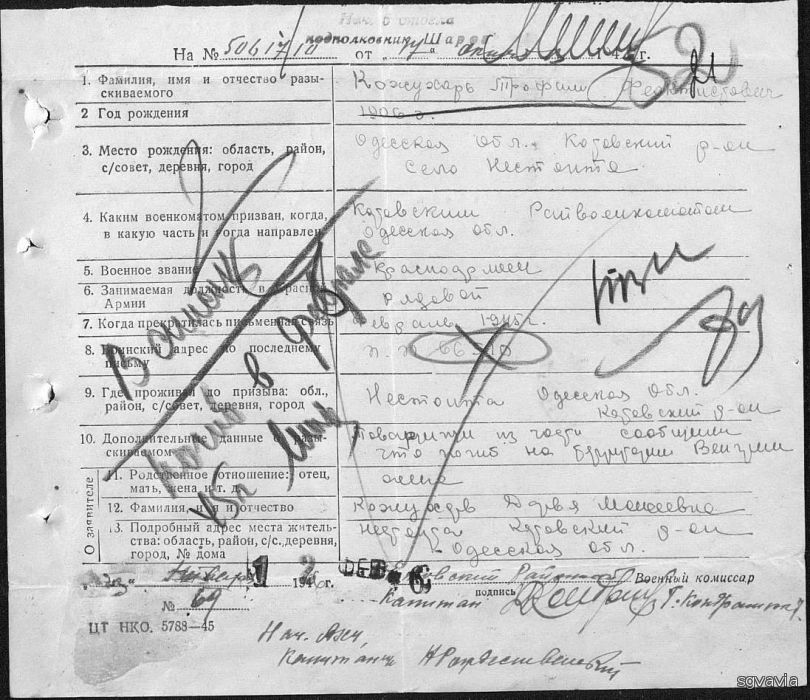 Нач. 5 отдела
подполковник Шаров
На № 50617/10 от
1. Фамилия, имя и отчество разыскиваемого
Кожухарь Трофим Феоктистович
2 Год рождения
1906 г.
3. Место рождения: область, район, с/совет, деревня, город
Одесская Обл. Котовский р-он
Село Нестоита
4. Каким военкоматом призван, когда, в какую часть и когда направлен
Котовским Райвоенкоматом
Одесская обл.
5. Военное звание
Красноармеец
6. Занимаемая должность в Красной Армии
Рядовой
7. Когда прекратилась письменная связь
Февраль 1945 г.
8. Воинский адрес по последнему письму
п.п.
9. Где проживал до призыва: обл., район, с/совет, деревня, город
Нестоита Одесская Обл.
Котовский р-он
10. Дополнительные данные о разыскиваемом
Товарищи из части сообщили
что погиб на территории Венгрии
О заявителе
11. Родственное отношение: отец, мать, жена и т. д.
жена
12. Фамилия, имя и отчество
Кожухарь Дарья Моисеевна
13. Подробный адрес места жительства: область, район, с/с, деревня, город, № дома
Нестоита Котовский р-он
Одесская обл.
Января 194 г.
1 2 ФЕВ
6
Военный комиссар
подпись
Капитан
№ 69
ЦТ НКО. 5788—45
Нач.
Капитан Рождественский
в феврале
погиб
45г
sgvavia